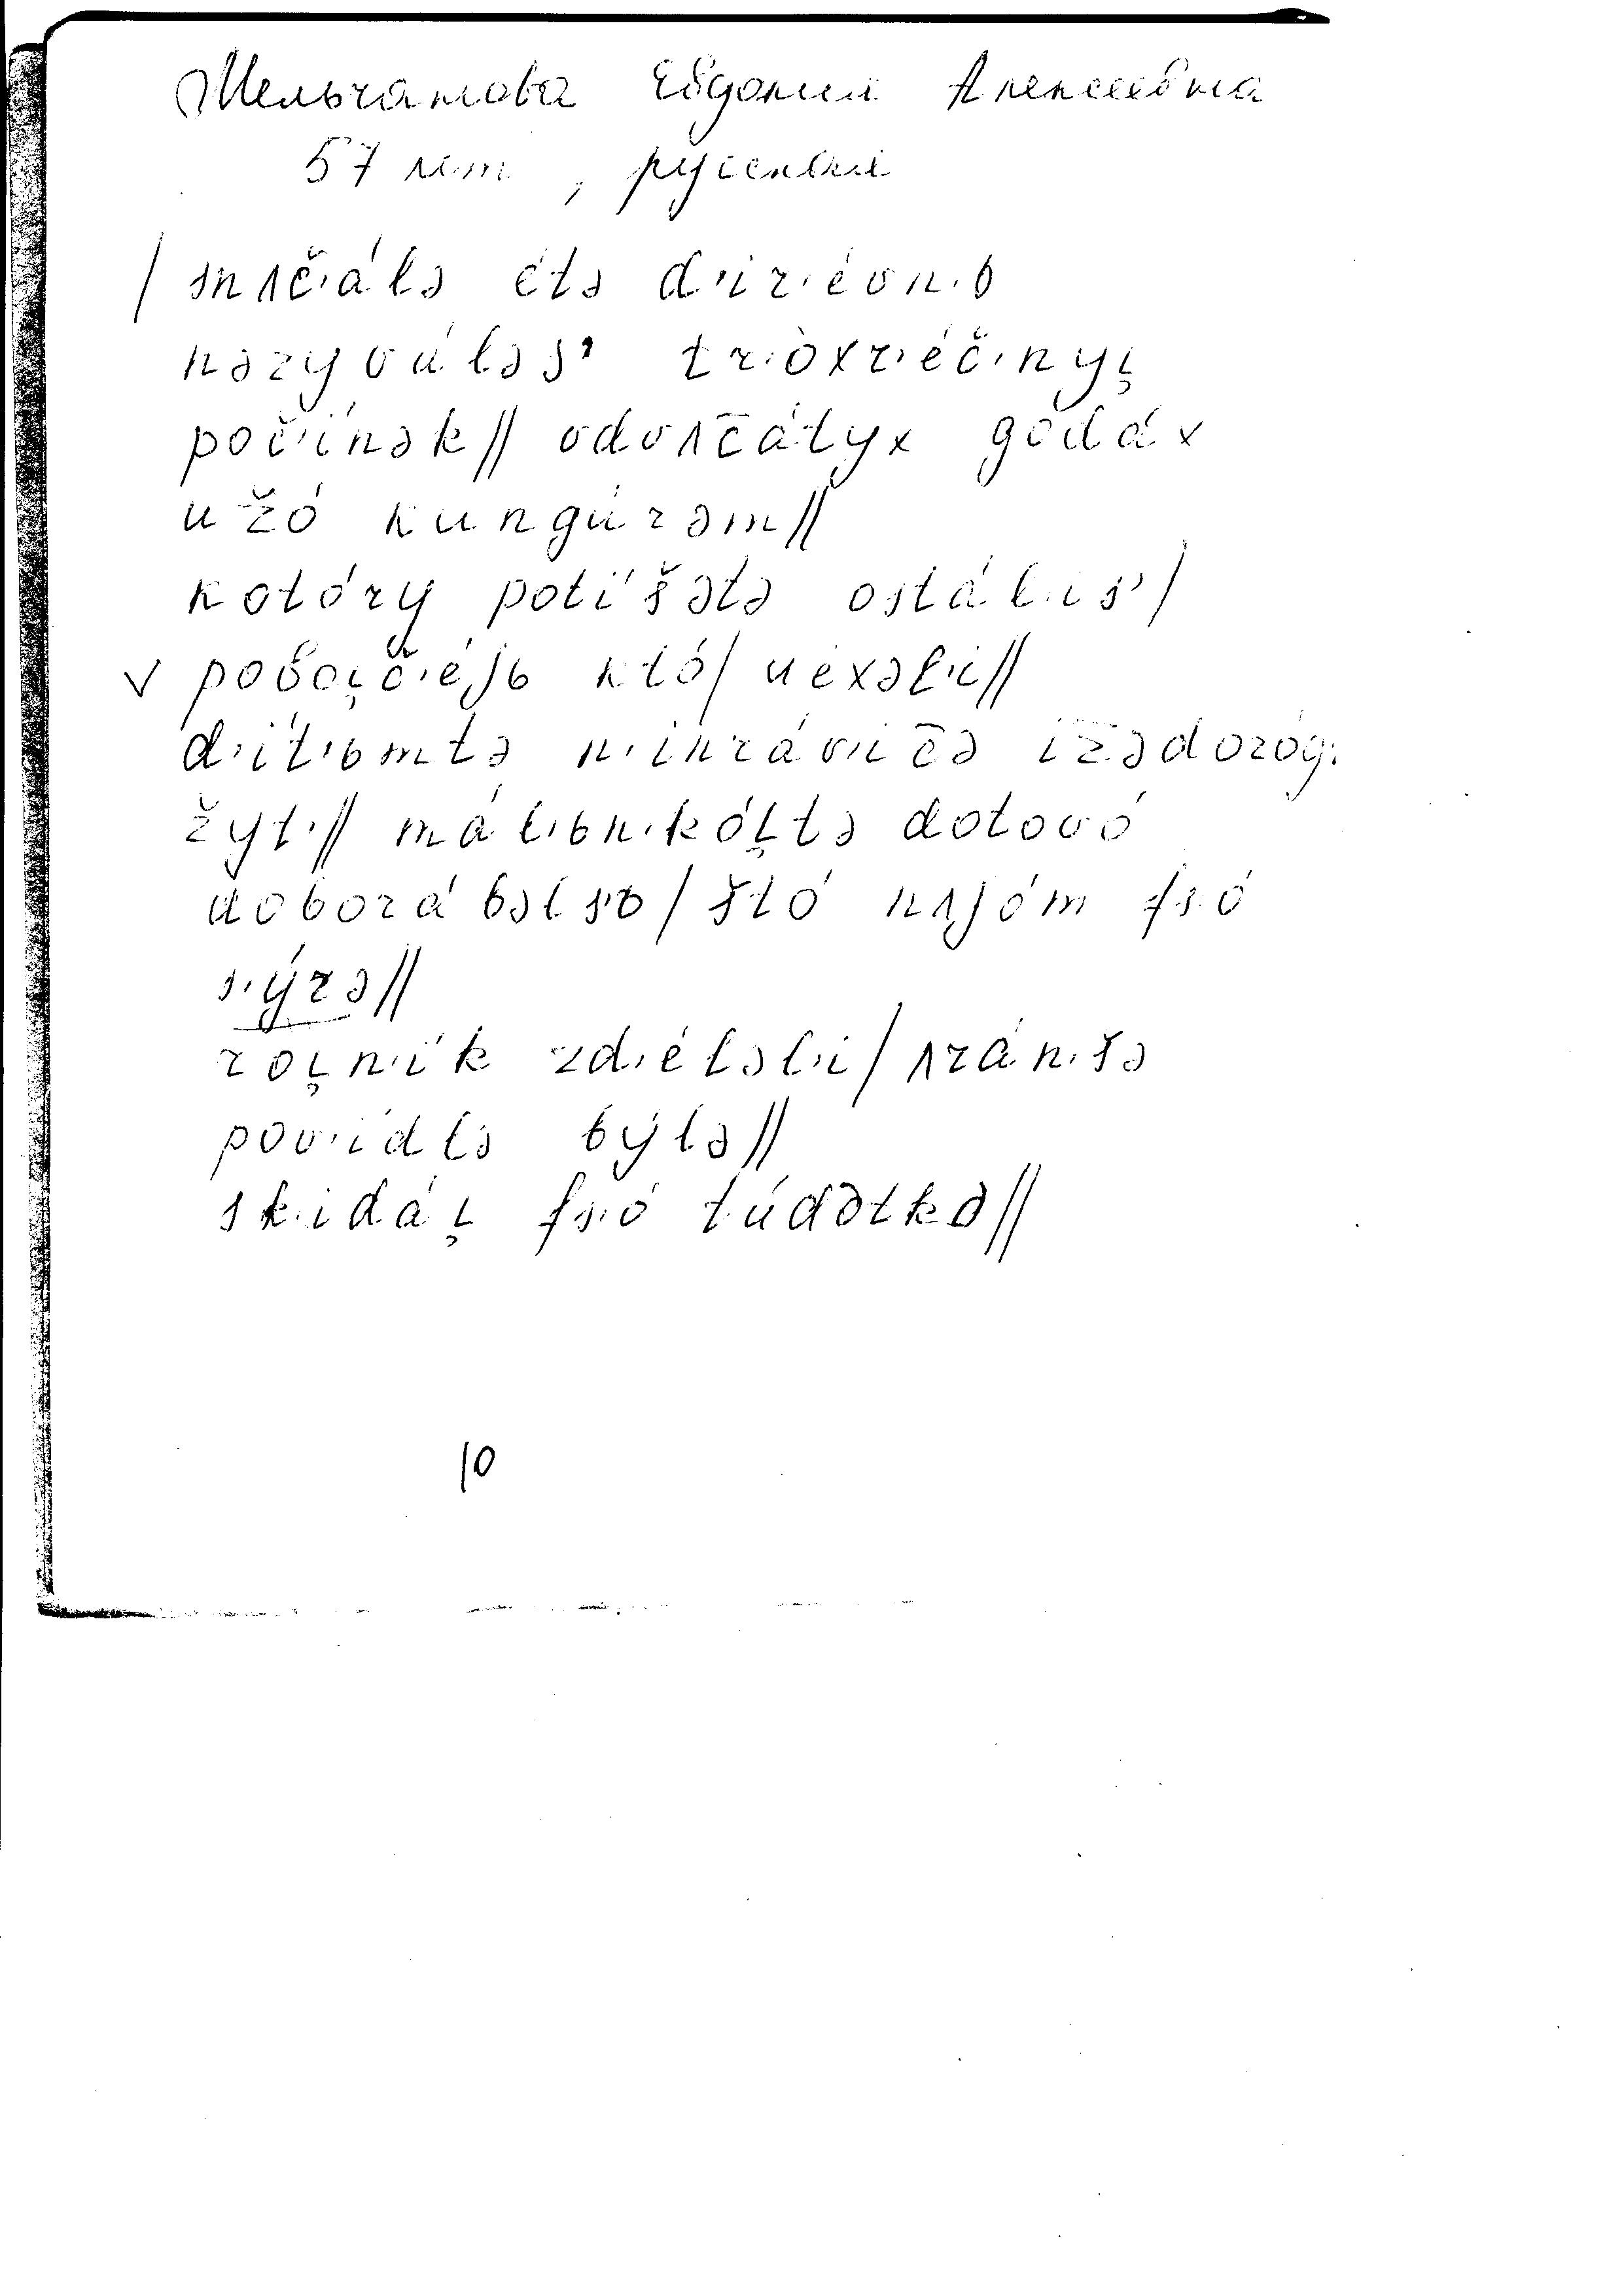 Мельчакова Евдокия Алексеевна
57 лет, русская
/ snʌč·álə étə d·ir·évn·ь
nəzyváləs' tr·òxr·éč·nyi̯
poč·ínək// vdvʌc̄átyx godáx
užó kungúrəm//
kotóry potíšətə ostál·is'/
v poboi̯č·éjь któ/ uéxəl·i//
d·ét·ьmtə n·inráv·ic̄ə iz̄ədoróg·
žyt·// mál·ьn·kói̯tə dotovó
doborábəlsə/ štó nʌjóm fs·ó
s·ýrə//
roi̯n·ík zd·éləl·i/ ʌrán·šə
pov·ídlə býlə//
sk·idái̯ fs·ó túdətkə//
10